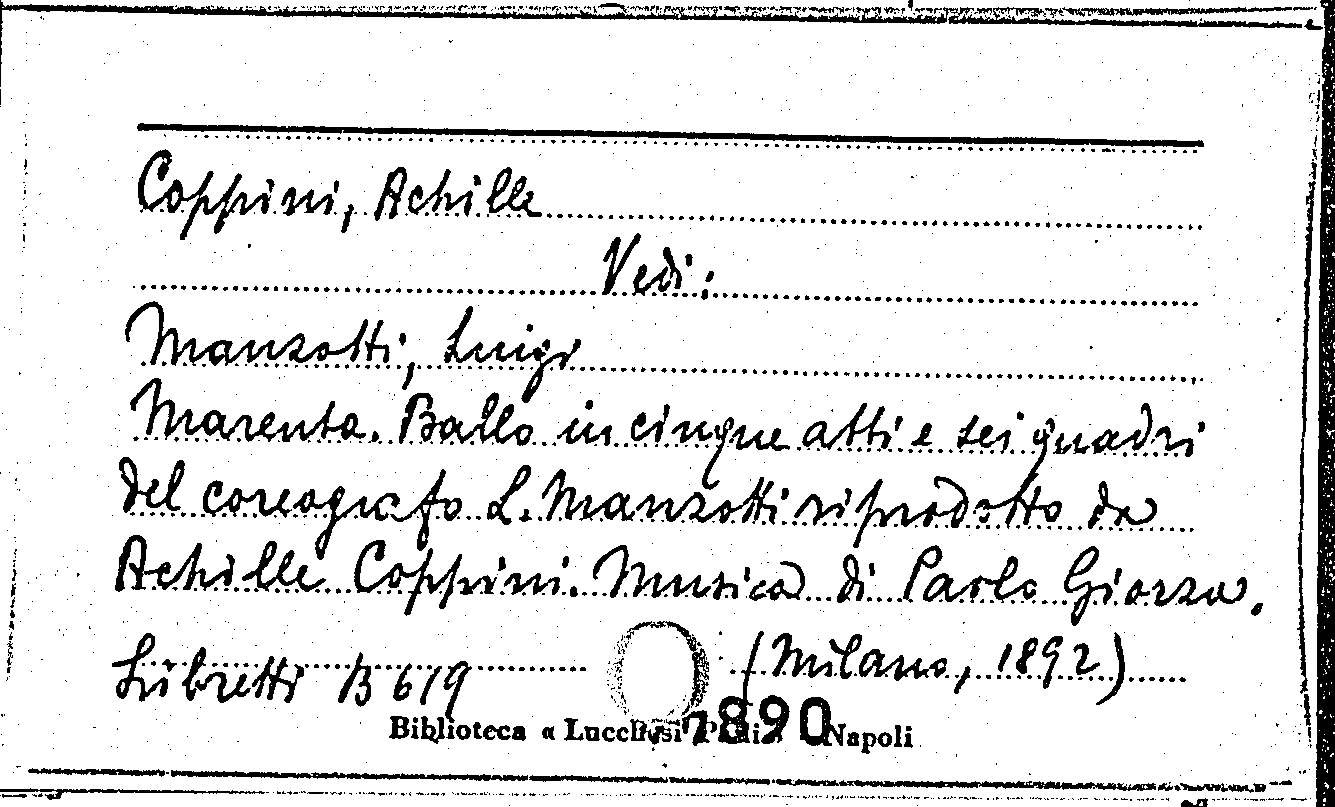 Coppini, Achille
Vedi:
Manzotti, Luigi
Marenta. Ballo in cinque atti e sei quadri
del coreografo L. Manzotti riprodotto da
Achille Coppini. Musica di Paolo Giorza.
Libretti B 619 (Milano, 1892)
Biblioteca « Lucchesi Palli » Napoli
7890